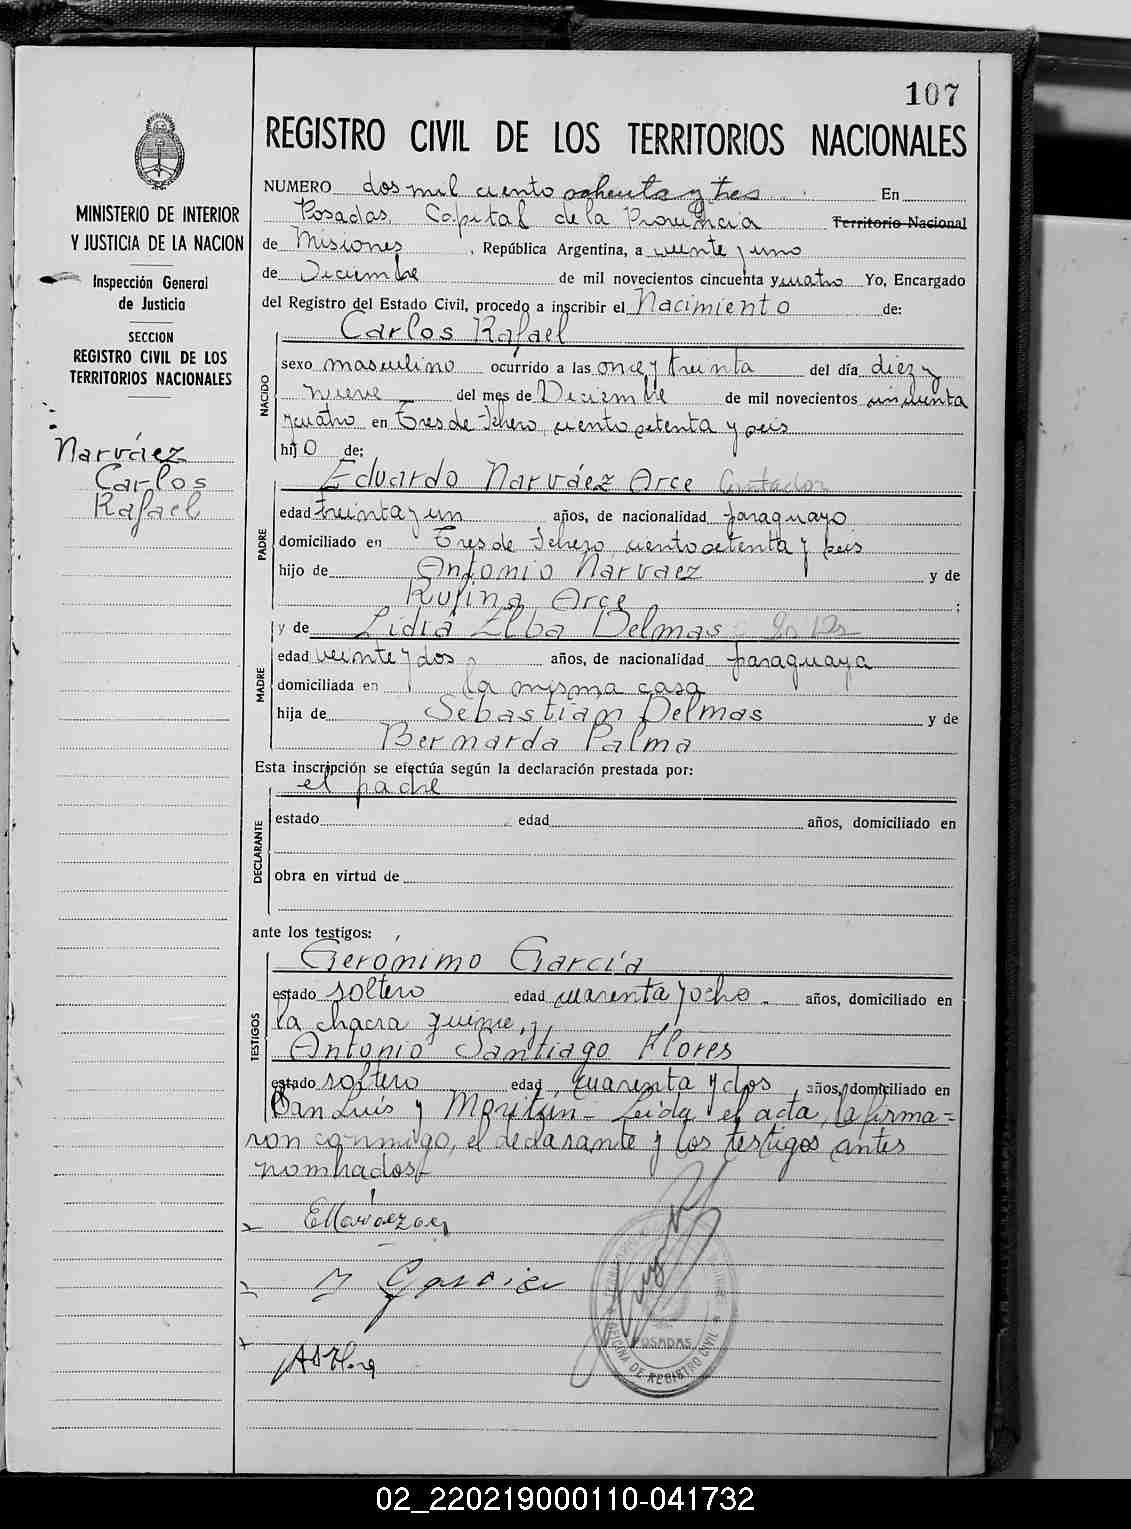 107
REGISTRO CIVIL DE LOS TERRITORIOS NACIONALES
MINISTERIO DE INTERIOR
Y JUSTICIA DE LA NACION
Inspección General
de Justicia
SECCION
REGISTRO CIVIL DE LOS
TERRITORIOS NACIONALES
Narváez
Carlos
Rafael
NUMERO dos mil ciento ochenta y tres En
Posadas Capital de la Provincia Territorio Nacional
de Misiones, República Argentina, a veinte y uno
de Diciembre de mil novecientos cincuenta y cuatro Yo, Encargado
del Registro del Estado Civil, procedo a inscribir el Nacimiento de:
Carlos Rafael
NACIDO
sexo masculino ocurrido a las once y treinta del día diez y
nueve del mes de Diciembre de mil novecientos cincuenta
y cuatro en Tres de Febrero, ciento setenta y seis
hijo de:
Eduardo Narváez Arce Contador
PADRE
edad treinta y un años, de nacionalidad paraguayo
domiciliado en Tres de Febrero ciento setenta y seis
hijo de Antonio Narvaez y de
Rufina Arce ;
y de Lidia Elba Delmas
MADRE
edad veinte y dos, años, de nacionalidad paraguaya
domiciliada en la misma casa
hija de Sebastián Delmas y de
Bernarda Palma
Esta inscripción se efectúa según la declaración prestada por:
el padre
DECLARANTE
estado edad años, domiciliado en
obra en virtud de
ante los testigos:
Gerónimo García
TESTIGOS
estado soltero edad cuarenta y ocho años, domiciliado en
la chacra quince, y,
Antonio Santiago Flores
estado soltero edad cuarenta y dos, años, domiciliado en
San Luis y - Leida el acta, la firma=
ron conmigo, el declarante y los testigos antes
nombrados-
García
POSADAS
OFICINA DE REGISTRO CIVIL
02_220219000110-041732